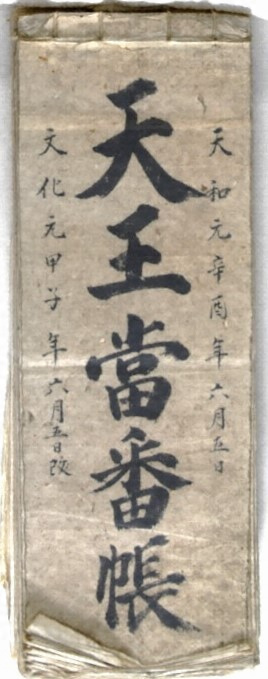 天和元辛酉年六月五日
天王當番帳
文化元甲子年六月五日改